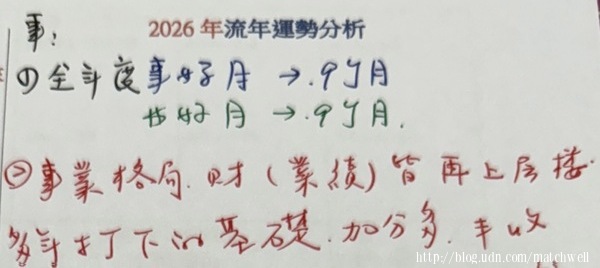 2026 年流年運勢分析
事:
①全年度事好月 → 9个月
財好月 → 9个月.
②事業格局.财(業績)皆再上层楼.
多年打下的基礎.加分多.丰收
http://blog.udn.com/matchwell